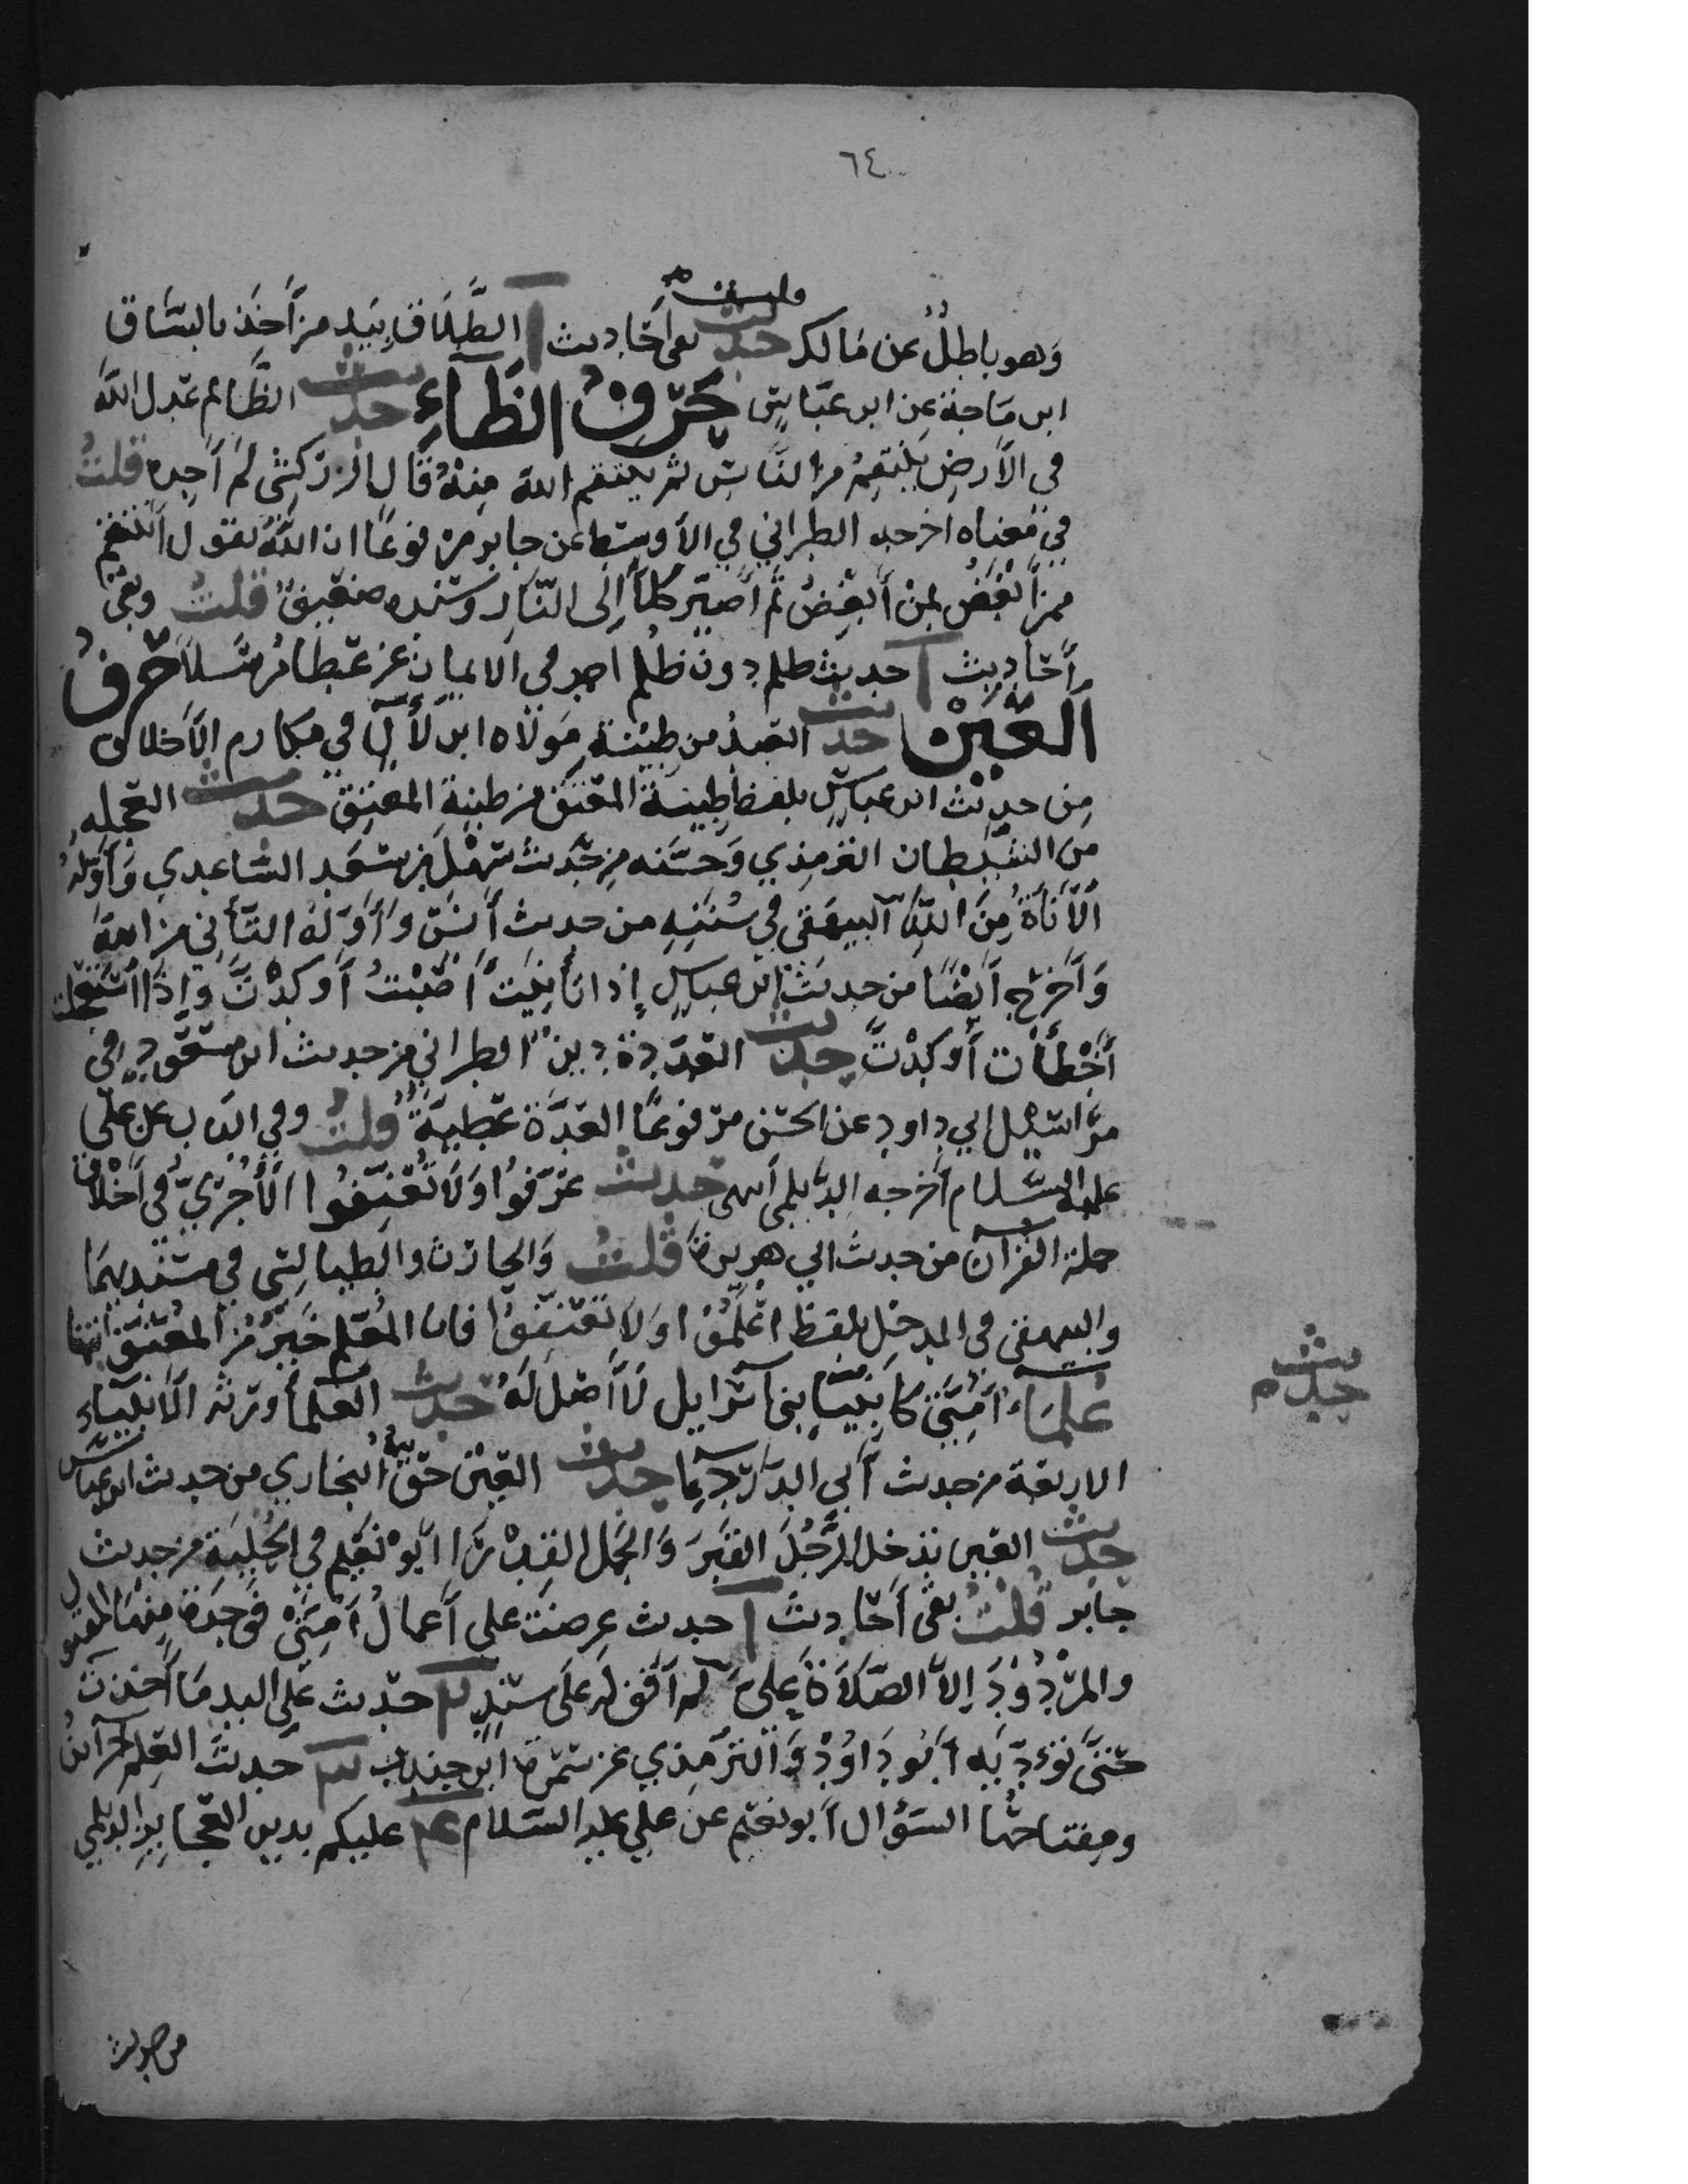 ٦٤
قلت
وهو باطلٌ عن مَالك حديث بقي أحَاديث ا الطَّلاَق بيَد من أَخَذ بالسَّاق
ابن مَاجة عن ابن عبّاسٍ حَرْفُ الظَّاءِ حديث الظَّالم عَدل اللّه
في الأرضِ يَنْتَقِمُ من النَّاسِ ثم ينتقم الله مِنْهُ قَال الزركشي لم أجِده قلتُ
في مَعناه اخرجه الطبراني في الأوسَط عن جابر مرْفوعًا ان اللّهَ يقول أنتقم
ممن أبْغَضُ بمنْ أَبغِضُ ثم أُصَيّر كلاً إلى النَّار وسَنده ضعيفٌ قلتُ وبقي
أحَاديث ا حديث ظلم دون ظُلم احمد في الايمان عن عَطا مُرسَلاً حَرْفُ
اَلعَيْنْ حديث العَبدُ من طِيْنة مَولاه ابن لاَلٍ في مكارم الأخلاق
مِن حديث ابن عبّاسٍ بلفظ طِينة المعتَق من طينة المعتِق حديث العَجله
مِن الشَّيطان الترمِذي وَحسَّنه من حَديث سَهْل بن سَعَد السَّاعدي وَأوَّلهُ
الأَنَاةُ مِنَ اللّهِ البيهَقي في سُنَنِهِ من حديث أنَسٍ وَأَوَّلهُ التَّأني من الله
وَأخرَج أيْضًا من حديث ابن عباسٍ إذا تَأَنَّيتَ أَصَبْتُ أَو كدْتَ وَإذَا اسْتَعجلت
أَخْطَأت أوكِدْتَ حديث العِدَة دين الطبراني من حديث ابن مسعُود وفي
مرَاسيل ابي داود عن الحسَن مرْفوعًا العِدَة عَطيَةٌ قلتُ وفي الباب عن علي
عليه السَّلام أخرجه الديلمي انتهى حديث عَرّفوُا وَلاَ تُعَنِّفوُا الأَجُرّيّ في أخْلاق
حملة القرآن من حديث ابي هريرة قلتُ وَالحارث والطيالِسي في مسْنَديهمَا
والبيهقي في المدخل بلفظ عَلِّمُوا وَلاَ تعَنِّفوُا فان المعَلّم خَيرٌ مُن المُعَنّف انتهى
حديث م
عُلمَاء أمَّتي كأنبيَاِ بني اسرايل لاَ أصْل لَهُ حديث العُلَمَأ ورَثة الأنبيَاءِ
الاربعَة من حديث أَبي الدّرْدَاءِ حديث العَيْن حقٌ البخاري من حديث ابن عباس
حديث العين تدْخل الرَّجُلَ القبَر وَالجَمل القِدْرَ ا ابُو نعَيم في الحِلْيَة من حديث
جابر قلتُ بقي أحَاديث ا حديث عرضَت علي أعمالُ أُمتيْ فوَجَدت مِنهَا المقبول
والمرْدوُدَ إلاَّ الصَّلاَةَ عَليَّ لم أقف له علَى سَنَدٍ ٢ حديث عَلى اليد مَا أخذت
حتَّى تؤدّيَه أبوُ دَاوُدْ وَالتّرمِذي عن سَمُرة ابن جندب ٣ حديث العِلم خزاينُ
ومِفتاحُهَا السّؤال أبو نعَيم عن علي عليه السّلام ٤ عليكم بدين العَجايز الديلمي
من حديث